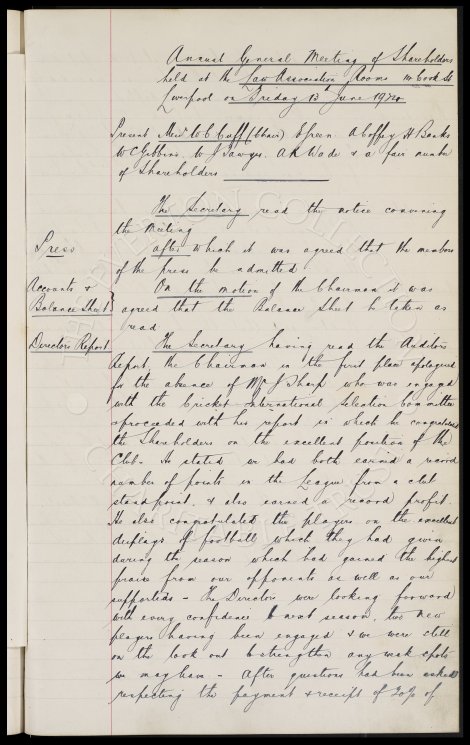 Annual General Meeting of Shareholders
held at the Law Association Rooms 14 Cook St
Liverpool on Friday 13th June 1924
Present Messrs W C Cuff (Chair) E Green A Coffey H Banks
W C Gibbins W J Sawyer A R Wade & a fair number
of Shareholders
The Secretary read the notice convening
the Meeting
Press
after which it was agreed that the members
of the press be admitted
Accounts &
Balance Sheet
On the motion of the Chairman it was
agreed that the Balance Sheet be taken as
read
Directors Report
The Secretary having read the Auditors
report, the Chairman in the first place apologised
for the absence of Mr J Sharp who was engaged
with the Cricket International Selection Committee
& proceeded with his report in which he congratulated
the Shareholders on the excellent position of the
Club - He stated we had both earned a record
number of points in the League from a club
standpoint, & also earned a record profit.
He also congratulated the players on the excellent
displays of football which they had given
during the season which had gained the highest
praise from our opponents as well as our
supporters - The Directors were looking forward
with every confidence to next season, two new
players having been engaged & we were still
on the look out to strengthen any weak spots
we may have - After questions had been asked
respecting the payment & receipt of 20% of